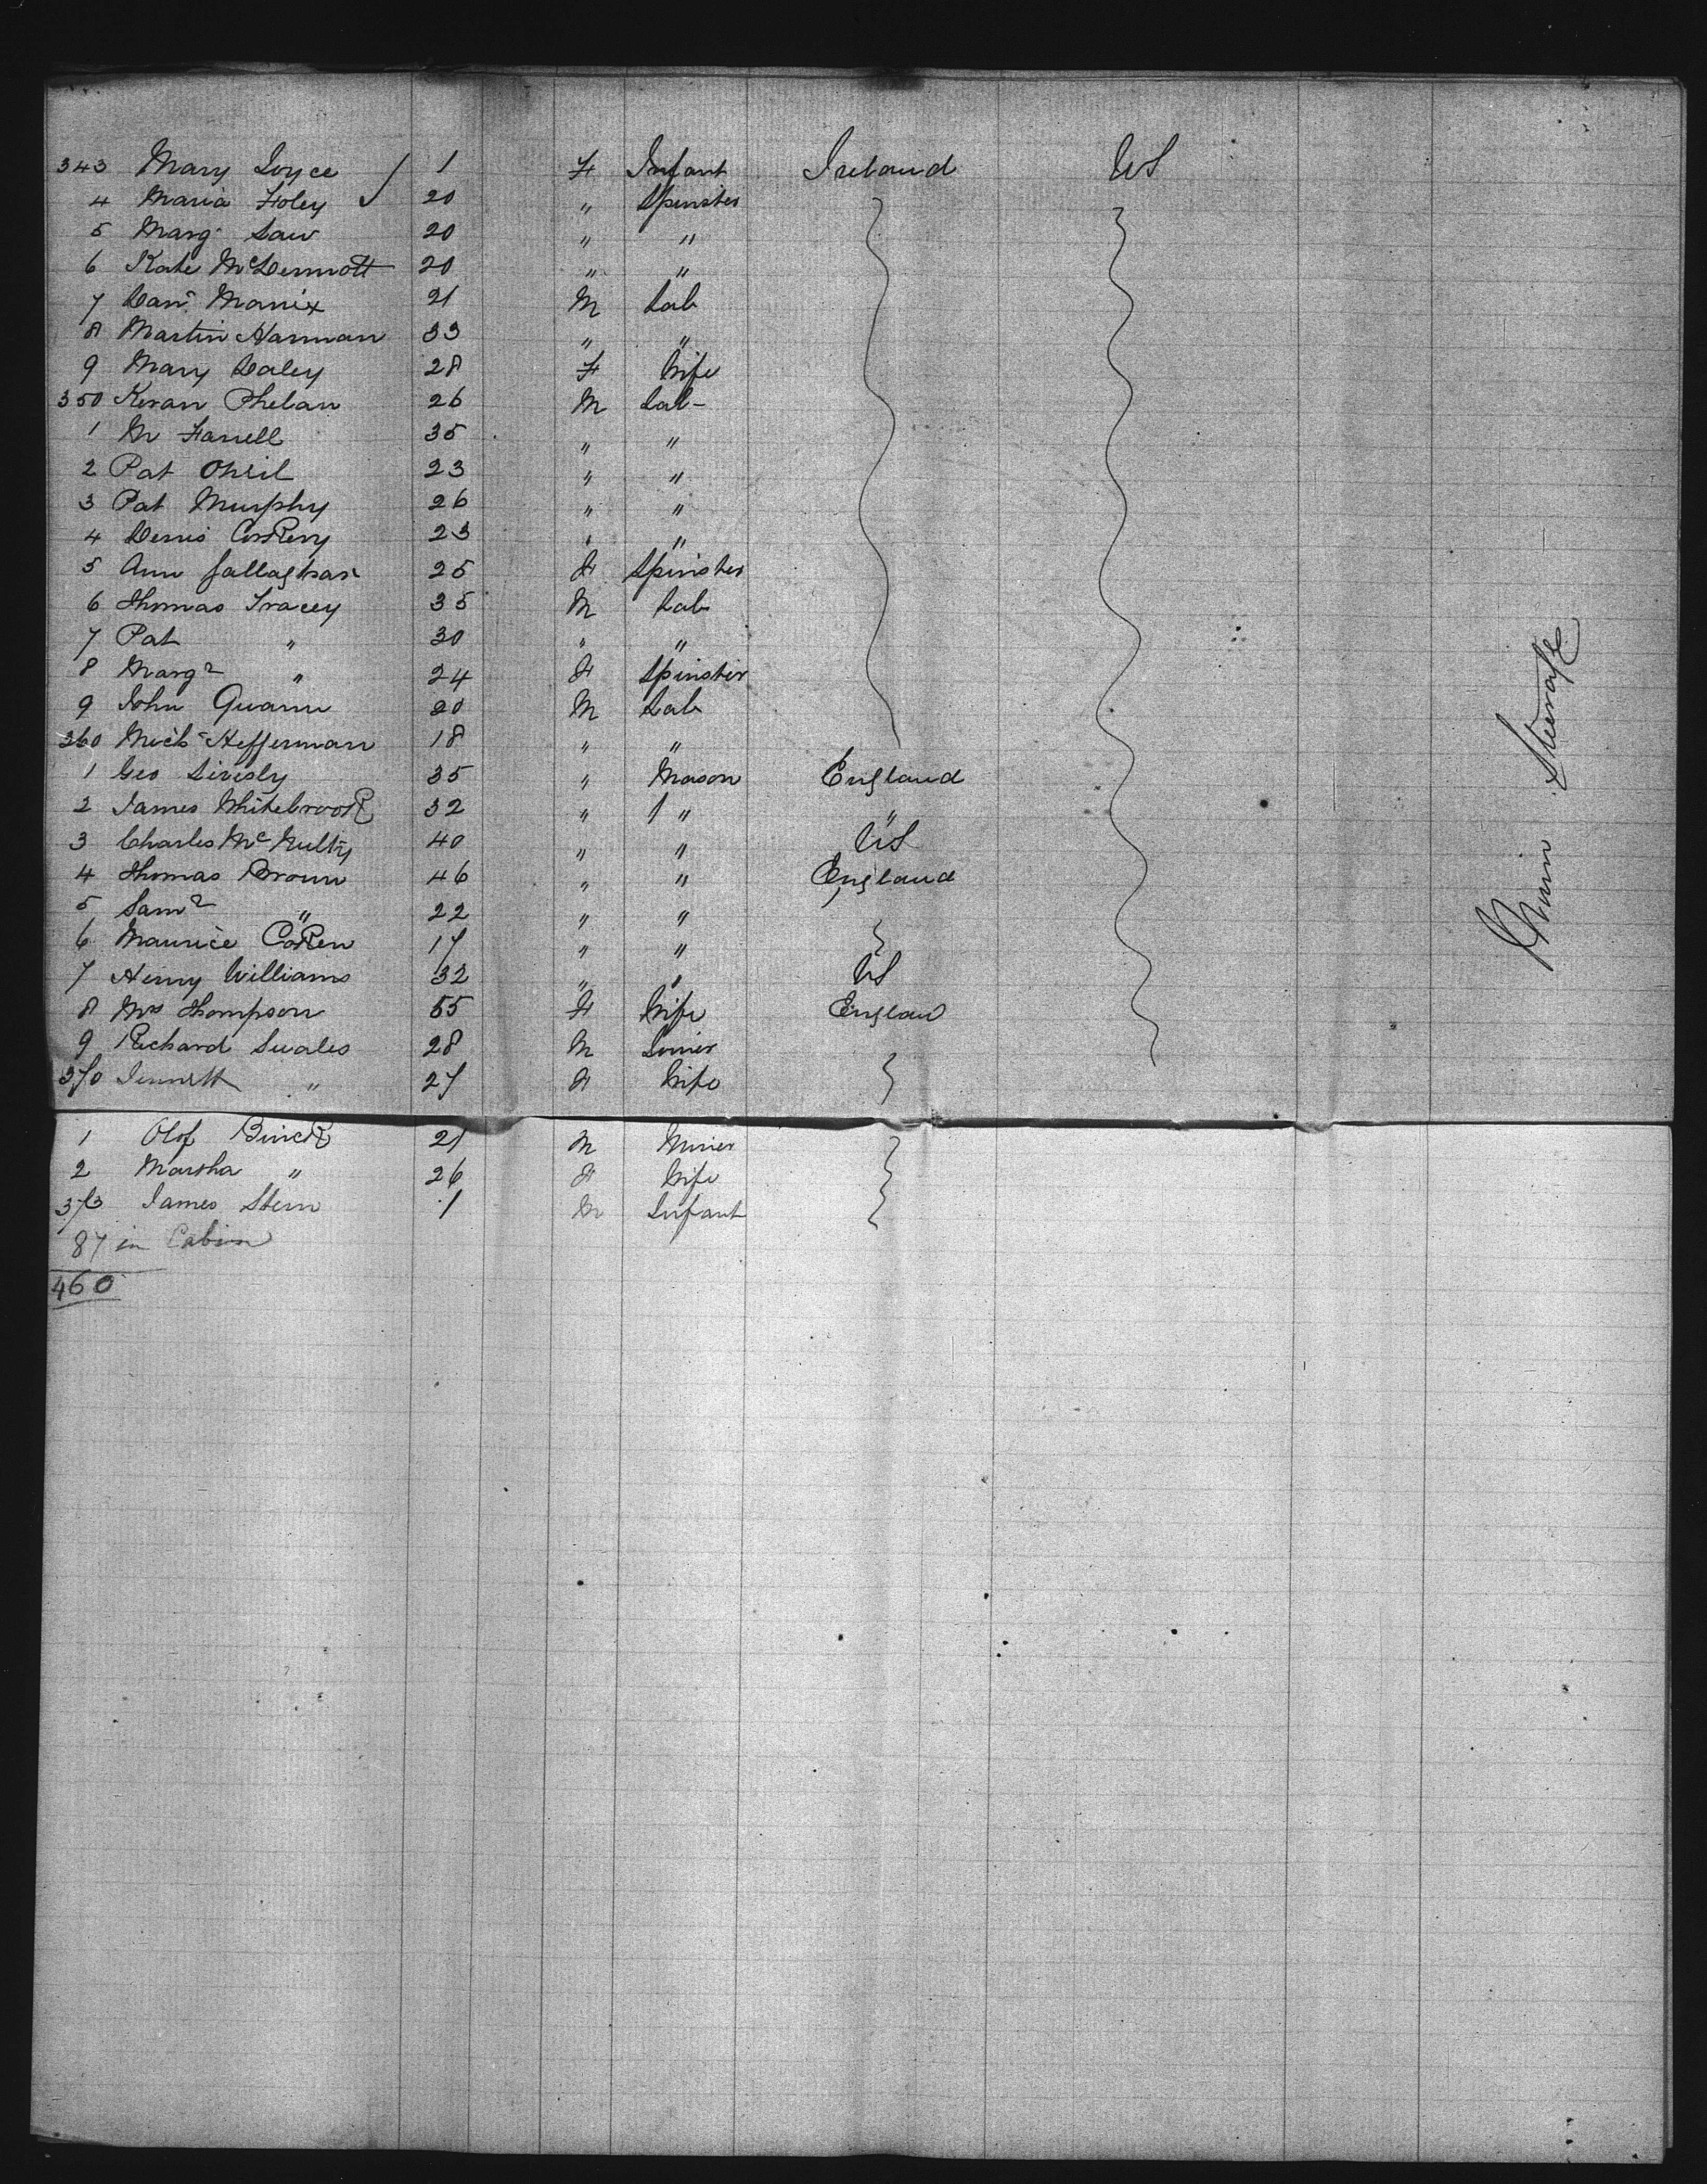 343 Mary Joyce 1 F Infant Ireland US
4 Maria Foley 20 " Spinster
5 Marg. Law 20 " "
6 Kate McDermott 20 " "
7 Danl Manix 21 M Lab
8 Martin Harman 33 " "
9 Mary Daley 28 F Wife
350 Keran Phelan 26 M Lab-
1 M Farrell 35 " "
2 Pat Oneil 23 " "
3 Pat Murphy 26 " "
4 Denis Corkery 23 " "
5 Ann Gallaghar 25 F Spinster
6 Thomas Tracey 35 M Lab
7 Pat " 30 " "
8 Margt " 24 F Spinster
9 John Quann 20 M Lab
360 Michl Heffernan 18 " "
1 Geo Livesly 35 " Mason England
2 James Whitebrook 32 " " "
3 Charles McNulty 40 " " US
4 Thomas Brown 46 " " England
5 Saml " 22 " "
6 Maurice Coken 17 " "
7 Henry Williams 32 " " US
8 Mrs Thompson 55 F Wife England
9 Richard Swales 28 M Joiner
370 Jennett " 27 F Wife
1 Olof Binck 27 M Miner
2 Martha " 26 F Wife
373 James Stern 1 M Infant
87 in Cabin
460
Main Steerage